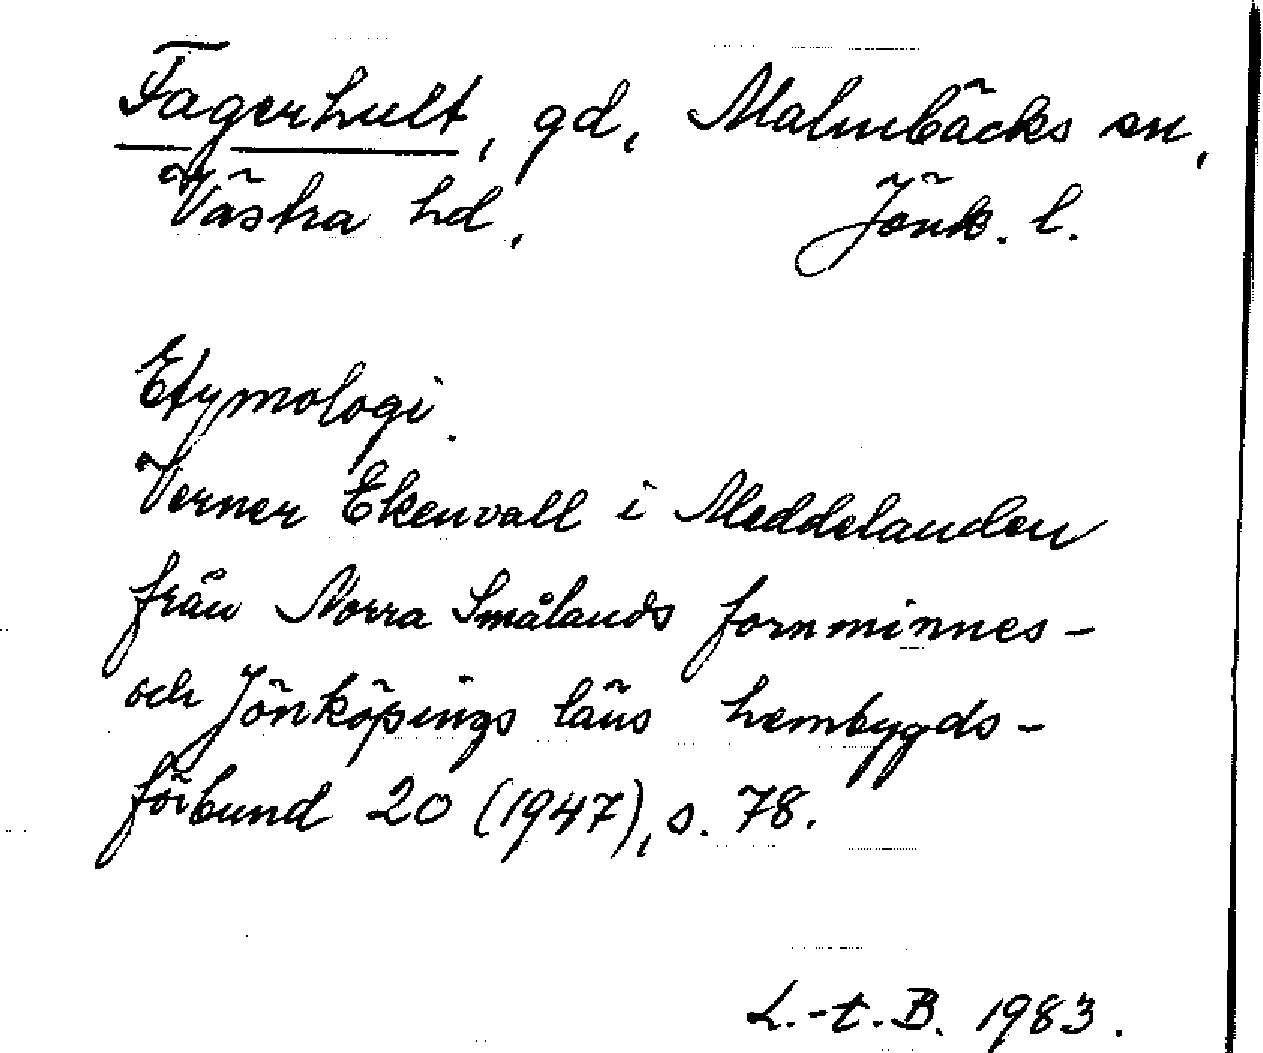 Fagerhult, gd, Malmbäcks sn,
Västra hd, Jönk. l.
Etymologi.
Verner Ekenvall i Meddelanden
från Norra Smålands fornminnes-
och Jönköpings läns hembygds-
förbund 20 (1947), s. 78.
L.-t. B. 1983.